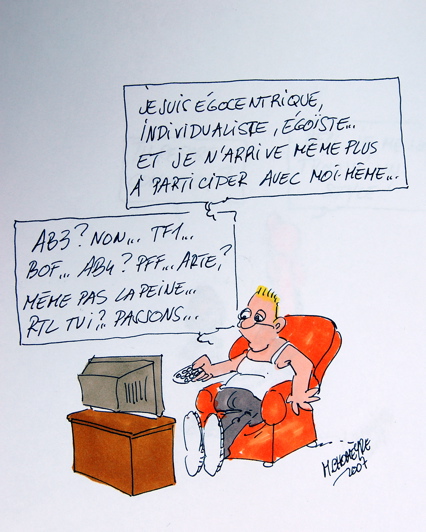 JE SUIS ÉGOCENTRIQUE,
INDIVIDUALISTE, ÉGOÏSTE...
ET JE N'ARRIVE MÊME PLUS
À PARTICIPER AVEC MOI-MÊME...
AB3? NON... TF1...
BOF... AB4? PFF... ARTE?
MÊME PAS LA PEINE...
RTL TVI?.. PASSONS...
2007